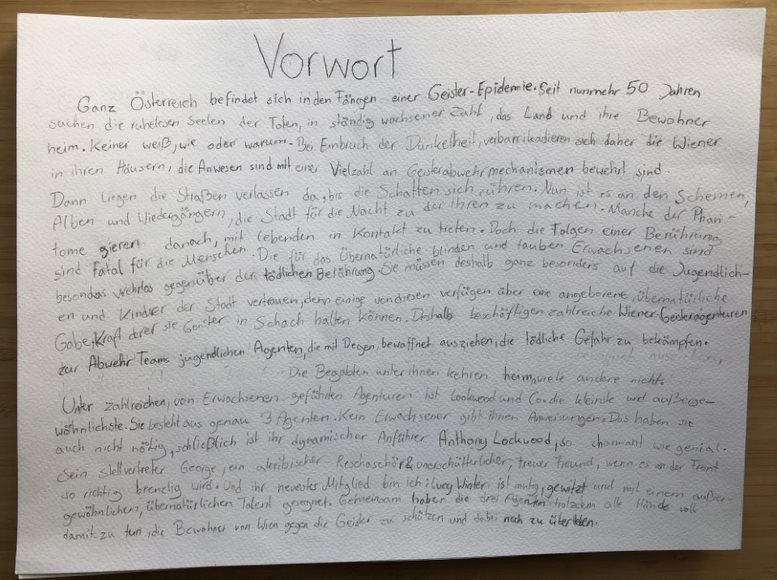 Vorwort
Ganz Österreich befindet sich in den Fängen einer Geister-Epidemie. Seit nunmehr 50 Jahren
suchen die ruhelosen Seelen der Toten, in ständig wachsener Zahl, das Land und ihre Bewohner
heim. Keiner weiß, wie oder warum. Bei Einbruch der Dunkelheit, verbarrikadieren sich daher die Wiener
in ihren Häusern, die Anwesen sind mit einer Vielzahl an Geisterabwehrmechanismen bewehrt sind
Dann liegen die Straßen verlassen da, bis die Schatten sich rühren. Nun ist es an den Schemen,
Alben und Wiedergängern, die Stadt für die Nacht zu der ihren zu machen. Manche der Phan-
tome gieren danach, mit lebenden in Kontakt zu treten. Doch die Folgen einer Berührung
sind fatal für die Menschen. Die für das Übernatürliche blinden und tauben Erwachsenen sind
besonders wehrlos gegenüber der tödlichen Berührung. Sie müssen deshalb ganz besonders auf die Jugendlich-
en und Kinder der Stadt vertrauen, denn einige von diesen verfügen über eine angeborene, übernatürliche
Gabe, Kraft derer sie Geister in Schach halten können. Deshalb beschäftigen zahlreiche Wiener Geisteragenturen
zur Abwehr Teams jugendlichen Agenten, die mit Degen bewaffnet ausziehen, die tödliche Gefahr zu bekämpfen.
Die Begabten unter ihnen kehren heim, viele andere nicht.
Unter zahlreichen, von Erwachsenen geführten Agenturen ist Lockwood und Co. die kleinste und außerge-
wöhnlichste. Sie besteht aus genau 3 Agenten. Kein Erwachsener gibt ihnen Anweisungen. Das haben sie
auch nicht nötig, schließlich ist ihr dynamischer Anführer Anthony Lockwood, so charmant wie genial.
Sein stellvertreter George, ein akribischer Reschaschör & unerschütterlicher, treuer Freund, wenn es an der Front
so richtig brenzlig wird. Und ihr neuestes Mitglied bin ich: Lucy Winter ist mutig, gewitzt und mit einem außer-
gewöhnlichen, übernatürlichen Talent gesegnet. Gemeinsam haben die drei Agenten trotzdem alle Hände voll
damit zu tun, die Bewohner von Wien gegen die Geister zu schützen und dabei noch zu überleben.